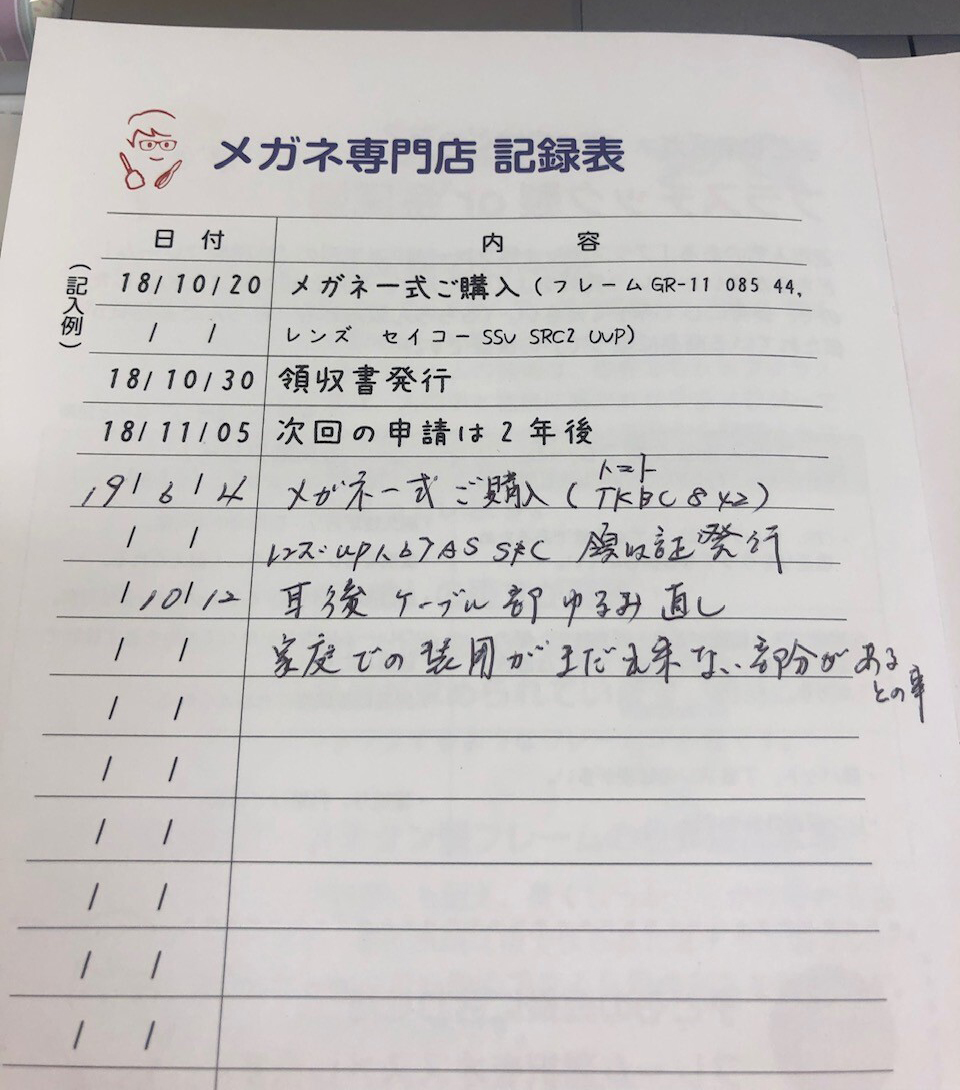 メガネ専門店 記録表
日付 内容
(記入例)
18/10/20 メガネ一式ご購入(フレームGR-11 085 44,
/ / レンズ セイコーSSV SRC2 UVP)
18/10/30 領収書発行
18/11/05 次回の申請は2年後
トニト
19/6/4 メガネ一式ご購入(TKBC 8 42)
/ / レンズ AS SRC 領収証発行
/10/12 耳後ケーブル部ゆるみ直し
/ / 家庭での装用がまだ出来ない部分がある
との事
/ /
/ /
/ /
/ /
/ /
/ /